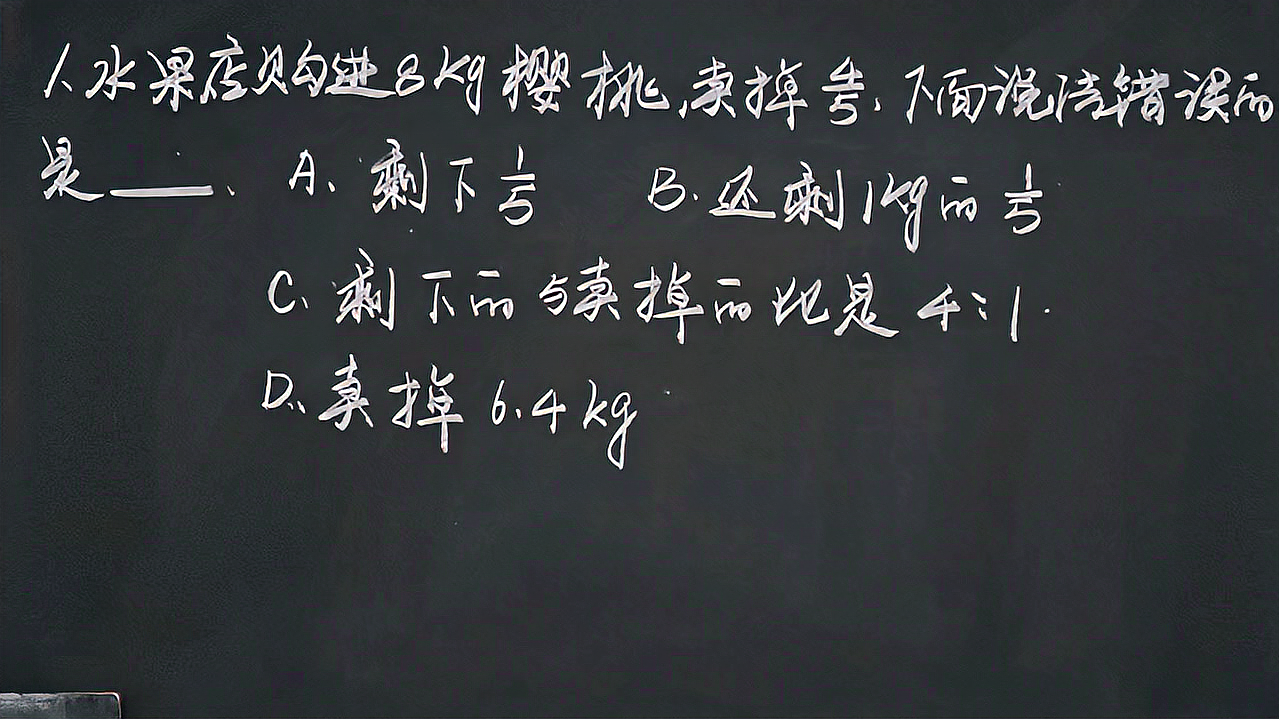 1、水果店购进8kg樱桃,卖掉4/5.下面说法错误的
是____、A、剩下1/5 B.还剩1kg的1/5
C、剩下的与卖掉的比是4:1.
D、卖掉6.4kg